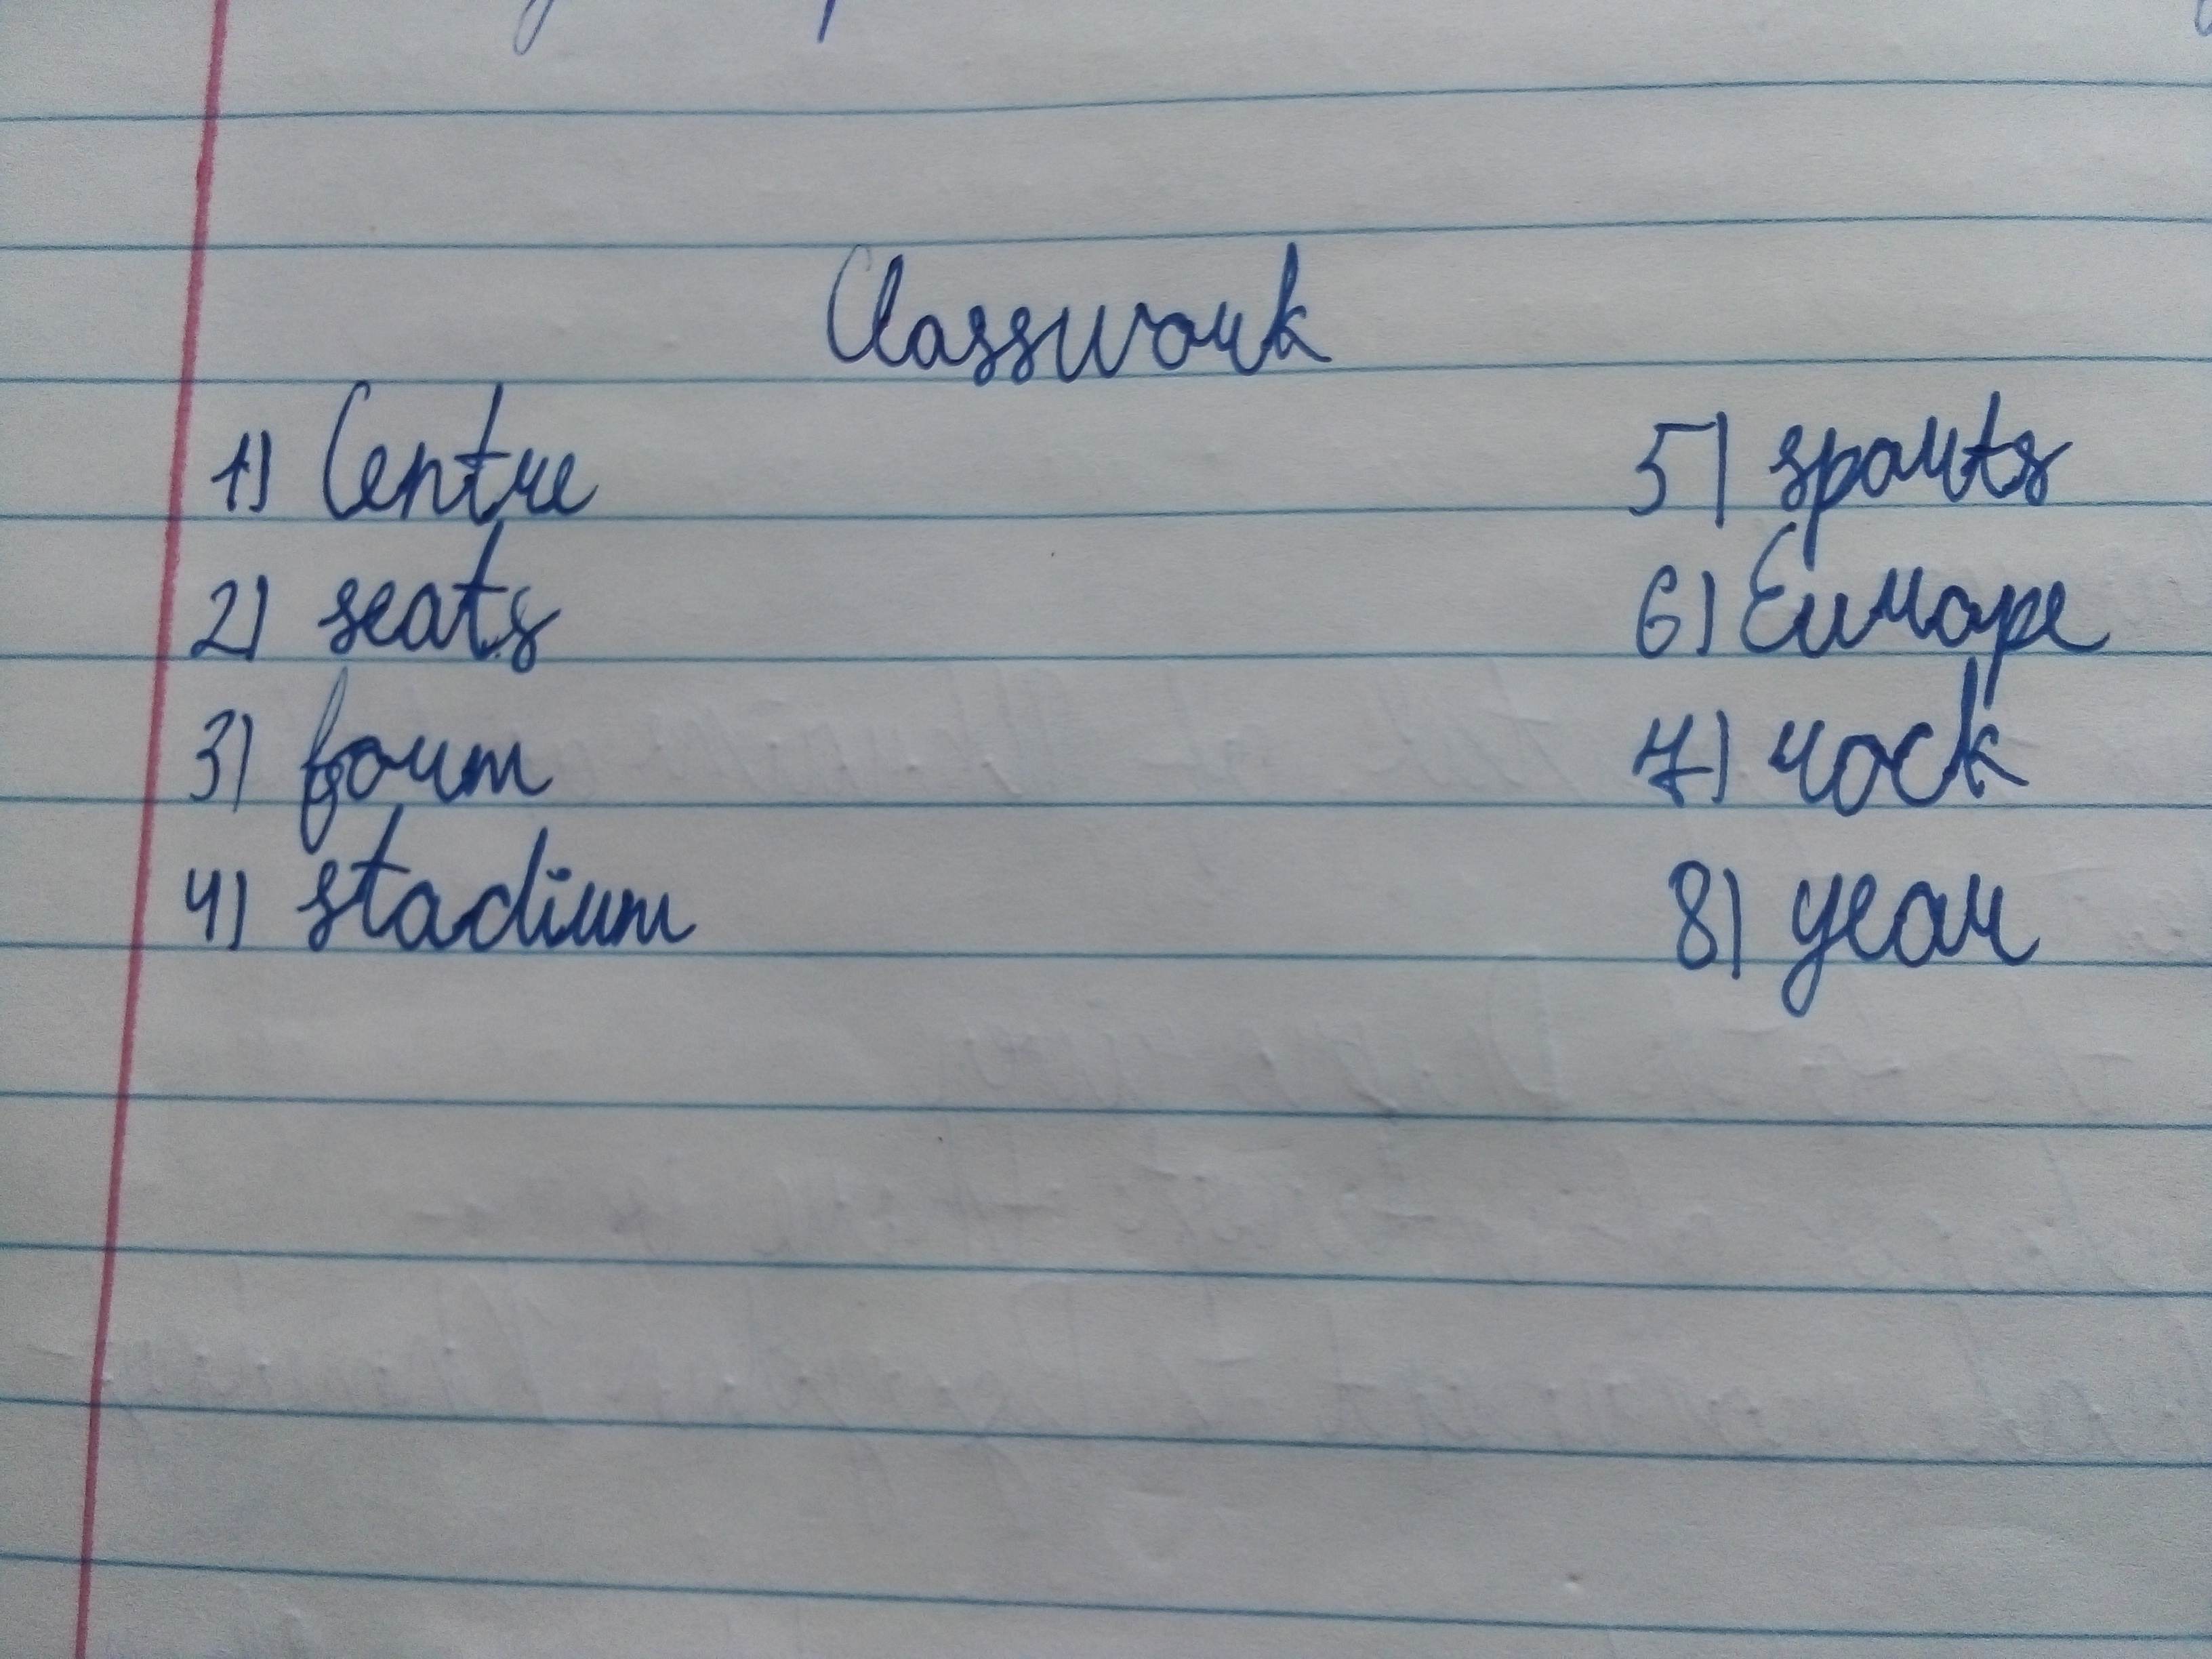 Classwork
1) Centre
2) seats
3) form
4) stadium
5) sports
6) Europe
7) rock
8) year